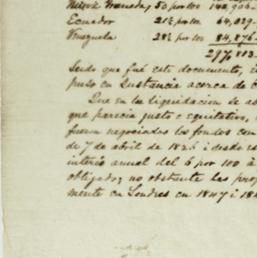 Nueva Granada, 50 por 100 148,908
Ecuador 21½ por 100 64,029
Venezuela 28½ por 100 84,876
297,813
Sendo que fué este documento, i
puso en Sustancia acerca de
Que en la liquidacion se a
que parecia justo e equitativo,
fueron negociados los fondos con
de 7 de abril de 1826 i desde e
interés anual del 6 por 100 á
obligado; no obstante las pro
mente en Londres en 1847 i 184